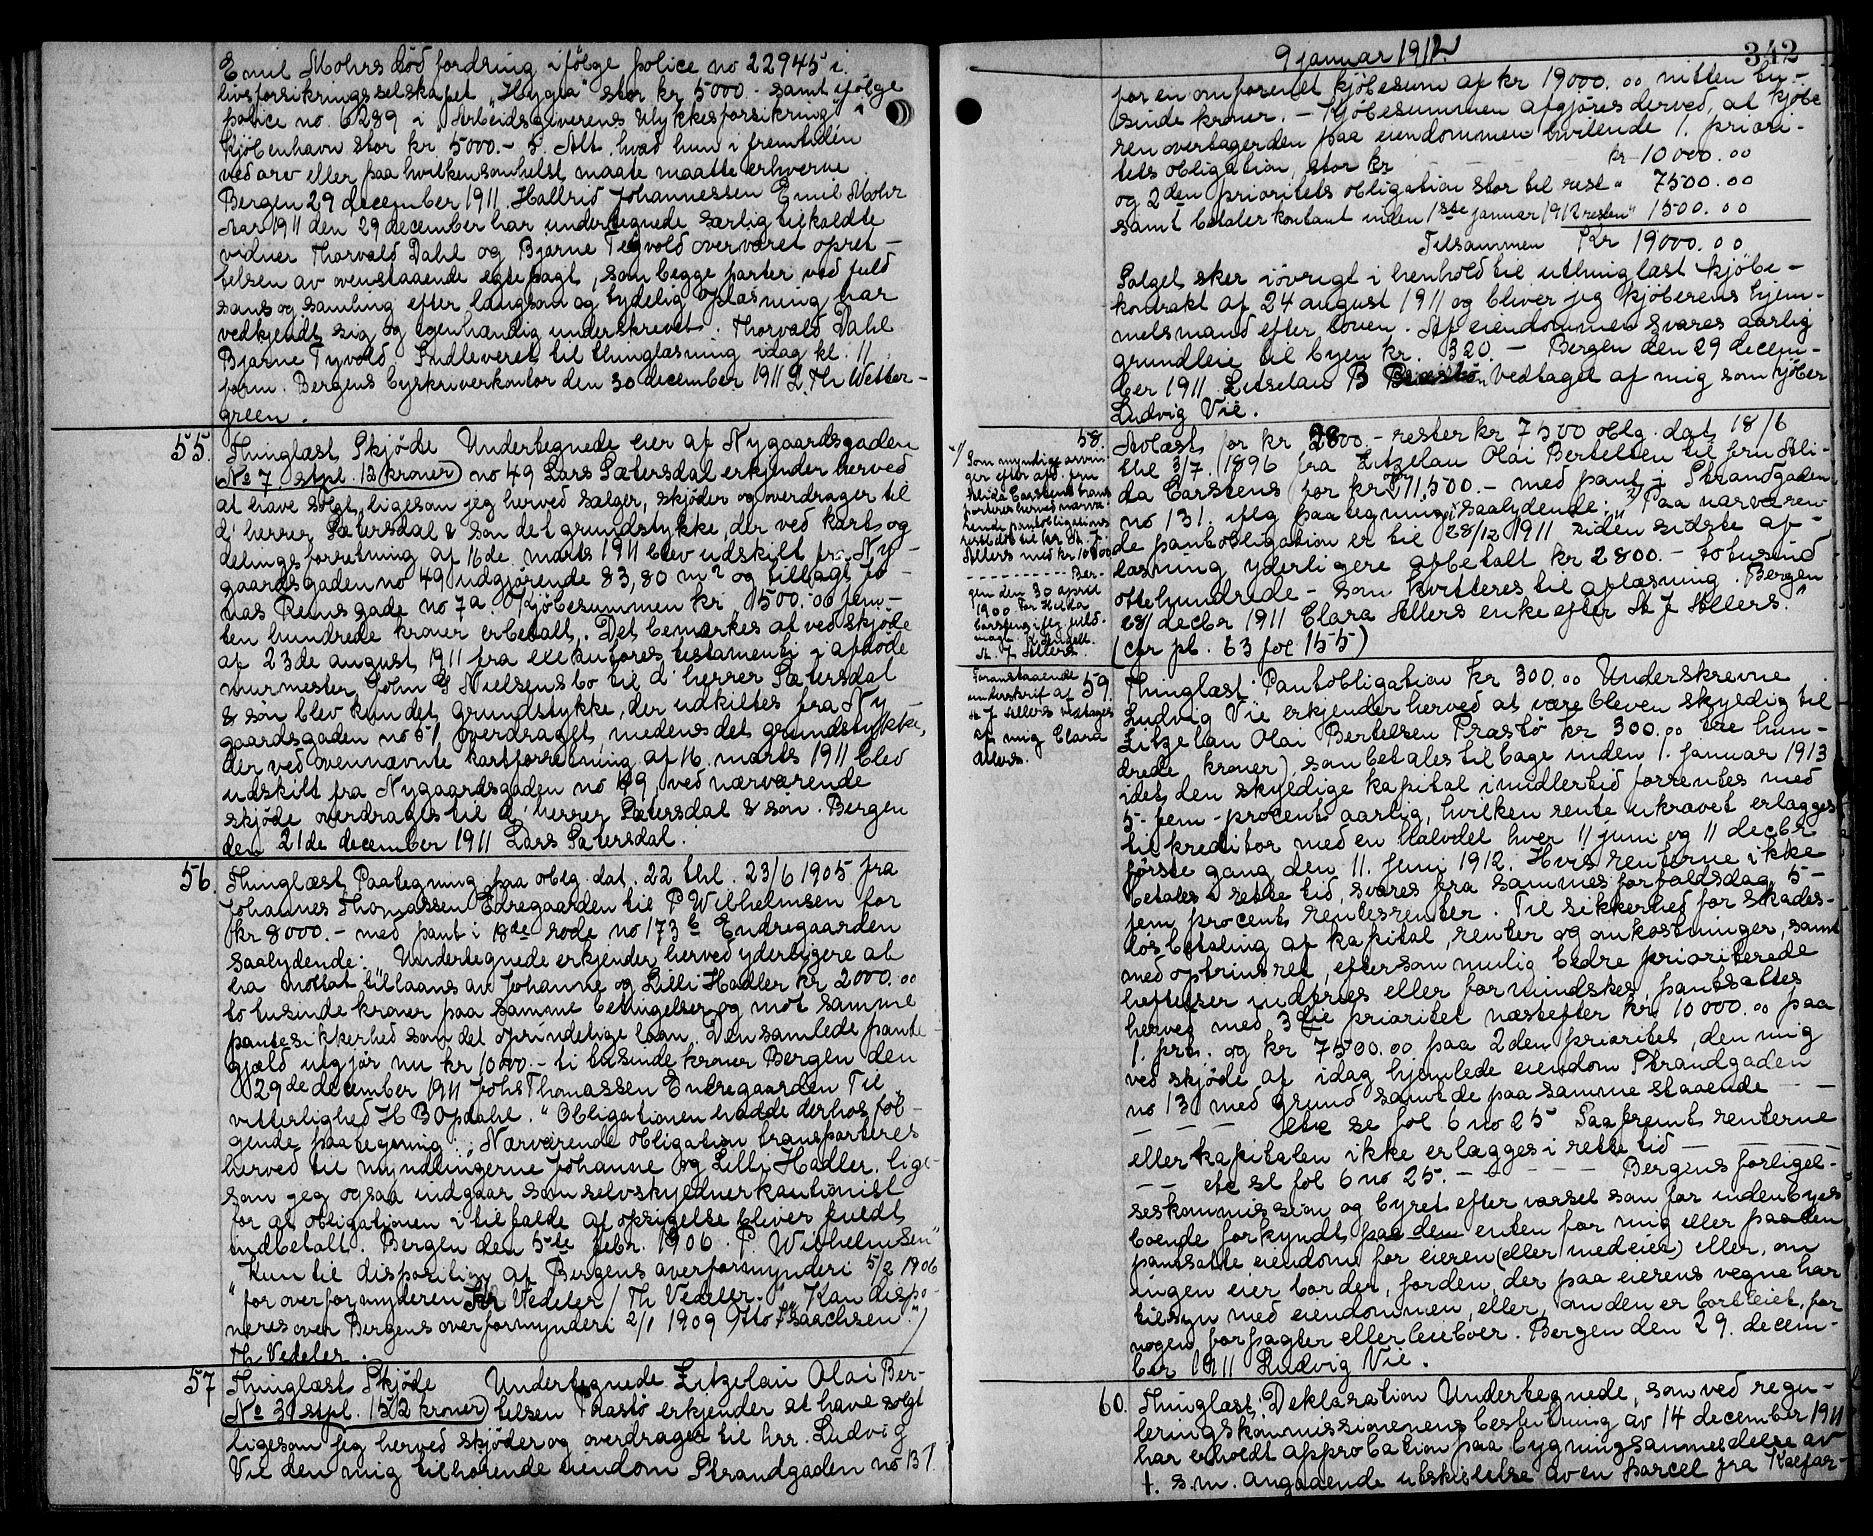 Emil Mohrs död fordring ifölge police no 22945 i
livsforsikringsselskapet "Hygia" stor kr 5000 - samt ifölge
police no. 6289 i "Arbeidsgiverens Ulykkesforsikring" i
Kjöbenhavn stor kr 5000.- 5. Alt hvad hun i fremtiden
ved arv eller paa hvilkensomhelst maate maatte erhverve
Bergen 29 december 1911 Hallrid Johannessen Emil Mohr
Aar 1911 den 29 december har undertegnede særlig tilkaldte
vidner Thorvald Dahl og Bjarne Tyvold overværet opret-
telsen av ovenstaaende egtepagt, som begge parter ved fuld
sans og samling efter langsom og tydelig oplæsning har
vedkjendt sig og egenhændig underskrevet. Thorvald Dahl
Bjarne Tyvold. Indleveret til thinglæsning idag kl. 11
form. Bergens byskriverkontor den 30 december 1911 L. Th Wetter-
green.
55. Thinglæst Skjöde Undertegnede eier af Nygaardsgaden
No 7 stpl. 12 kroner) no 49 Lars Sætersdal erkjender herved
at have solgt, ligesom jeg herved sælger, skjöder og overdrager til
d'herrer Sætersdal & Sön det grundstykke, der ved kart og
delingsforretning af 16de marts 1911 blev udskilt fra Ny-
gaardsgaden no 49 udgjörende 83,80 m2 og tillagt Jo-
nas Reinsgade no 7a. Kjöbesummen kr 1500.00 fem-
ten hundrede kroner er betalt. Det bemærkes at ved skjöde
af 23de august 1911 fra executores testamenti i afdöde
murmester John G Nielsens bo til d'herrer Sætersdal
& sön blev kun det grundstykke, der udskiltes fra Ny
gaardsgaden no 51 overdraget, medens det grundstykke,
der ved ovennævnte kartforretning af 16. marts 1911 blev
udskilt fra Nygaardsgaden no 49, ved nærværende
skjöde overdrages til d'herrer Sætersdal & sön. Bergen
den 21de december 1911 Lars Sætersdal.
56. Thinglæst Paategning paa oblg. dat. 22 thl. 23/6 1905 fra
Johannes Thomassen Edregaarden til P Wilhelmsen for
kr 8000.- med pant i 18de rode no 173 b Endregaarden
saalydende: Undertegnede erkjender herved yderligere at
ha mottat tillaans av Johanne og Lilli Hadler kr 2000.00
to tusinde kroner paa samme betingelser og mot samme
pantesikkerhed som det oprindelige laan. Den samlede pante-
gjæld utgjör nu kr 10000.- ti tusinde kroner Bergen den
29de december 1911 Johs Thomassen Endregaarden Til
vitterlighed H B Opdahl. "Obligationen hadde derhos föl-
gende paategning: "Nærværende obligation transporteres
herved til myndlingerne Johanne og Lilli Hadler. lige-
som jeg ogsaa indgaar som selvskyldnerkautionist
for at obligationen i tilfælde af opsigelse bliver fuldt
indbetalt. Bergen den 5te febr. 1906. P. Wilhelmsen"
"Kun til disposition af Bergens overformynderi 5/2 1906
"for overformynderen Th. Vedeler / Th Vedeler." "Kan dispo-
neres over Bergens overformynderi 2/1 1909 Otto Isaachsen"/
Th Vedeler.
57 Thinglæst Skjöde Undertegnede Litzelau Olai Ber-
No 3 stpl. 152 kroner) telsen Præstö erkjender at have solgt
ligesom jeg herved skjöder og overdrager til hrr. Ludvig
Vie den mig tilhörende eiendom Strandgaden no 131
9 januar 1912 342
for en omforenet kjöbesum af kr 19000.00 nitten tu-
sinde kroner. - Kjöbesummen afgjöres derved, at kjöbe
ren overtager den paa eiendommen hvilende 1. priori-
tets obligation, stor kr - - - - kr 10000.00
og 2den prioritets obligation stor til rest " 7500.00
samt betaler kontant inden 1ste januar 1912 resten " 1500.00
Tilsammen Kr 19000.00
Salget sker iövrigt i henhold til uthinglæst kjöbe-
kontrakt af 24 august 1911 og bliver jeg kjöberens hjem-
melsmand efter loven. Af eiendommen svares aarlig
grundleie til byen kr. 320. - Bergen den 29 decem-
ber 1911 Litselau B Præstö. Vedtaget af mig som kjöber
Ludvig Vie.
58. Avlæst for kr 2800.- rester kr 7500 oblg. dat. 18/6
thl 3/7. 1896 fra Litzelau Olai Bertelsen til fru Ali-
da Carstens for kr 11,500.- med pant i Strandgaden
no 131. iflg paategning saalydende: "Paa nærværen
de pantobligation er til 28/12 1911 siden sidste af-
læsning yderligere afbetalt kr 2800.- totusind
ottehundrede - som kvitteres til aflæsning. Bergen
28/ decbr 1911 Clara Allers enke efter A J Allers."
(cfr pb. 63 fol 155)
x/ Som myndige arvin
ger efter afd. fru
Alida Carstens trans
porteres herved nærvæ
rende pantobligations
restbeløb til hr A. J.
Allers med kr 10800
- - - - - - Ber-
gen den 30 april
1900 For Hilda
Carstens iflg. fuld-
magt
A. J. Allers.
Foranstaaende
underskrift af
A J Allers vedtages
af mig Clara
Allers.
59. Thinglæst Pantobligation kr 300.00 Underskrevne
Ludvig Vie erkjender herved at være bleven skyldig til
Litzelau Olai Bertelsen Præstö kr 300.00 tre hun-
drede kroner), som betales tilbage inden 1. januar 1913
idet den skyldige kapital imidlertid forrentes med
5- fem - procent aarlig, hvilken rente ukrævet erlægges
til kreditor med en halvdel hver 11 juni og 11 decbr
förste gang den 11. juni 1912. Hvis renterne ikke
betales i rette tid, svares fra sammes forfaldsdag 5-
fem procent rentesrenter. Til sikkerhed for skades-
lösbetaling af kapital, renter og omkostninger, samt
med optrinsret, eftersom mulig bedre prioriterede
heftelser indfries eller formindskes, pantsættes
herved med 3die prioritet næstefter kr. 10000.00 paa
1. prt. og kr 7500.00 paa 2den prioritet, den mig
ved skjöde af idag hjemlede eiendom Strandgaden
no 131 med grund samt de paa samme staaende - -
- - - - etc se fol 6 no 25 Saafremt renterne
eller kapitalen ikke erlægges i rette tid - - - -
- - etc se fol 6 no 25. - - - - Bergens forligel-
seskommission og byret efter varsel som for indenbyes
boende forkyndt paa den enten for mig eller paa den
pantsatte eiendom for eieren (eller medeier) eller, om
ingen eier bor der, for den, der paa eierens vegne har
tilsyn med eiendommen, eller, om den er bortleiet, for
nogen forpagter eller leieboer. Bergen den 29. decem-
ber 1911 Ludvig Vie.
60. Thinglæst Deklaration Undertegnede, som ved regu-
leringskommissionenens beslutning av 14 december 1911
har erholdt approbation paa bygningsanmeldelse av
1. s.m. angaaende utskillelse av en parcel fra Kalfar-